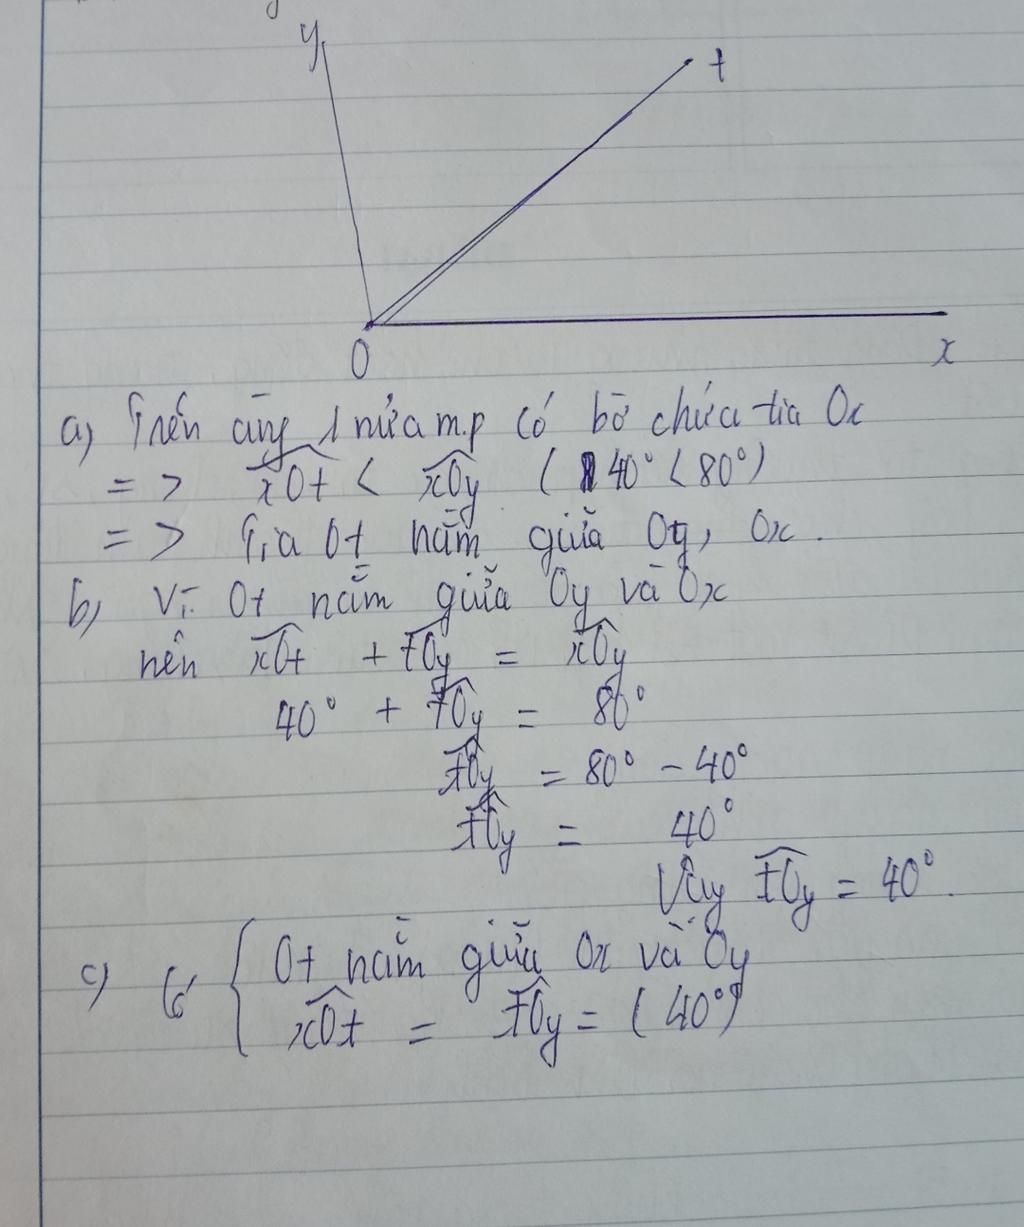 y
t
O
x
a) Trên cùng 1 nửa m.p có bờ chứa tia Ox
=> xOt < xOy ( 40° < 80°)
=> Tia Ot nằm giữa Oy, Ox.
b) Vì Ot nằm giữa Oy và Ox
nên xOt + tOy = xOy
40° + tOy = 80°
tOy = 80° - 40°
tOy = 40°
Vậy tOy = 40°.
c) Có { Ot nằm giữa Ox và Oy
xOt = tOy = (40°)